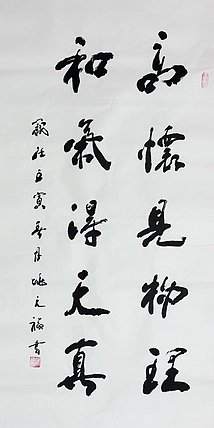 高懷見物理
和氣得天真
歲在五寅春月姚元福書